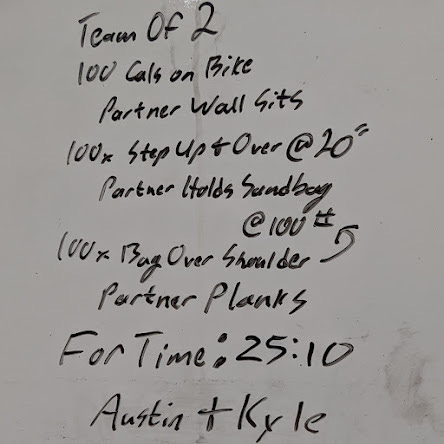 Team Of 2
100 Cals on Bike
Partner Wall Sits
100x Step Up + Over @ 20"
Partner Holds Sandbag
@ 100#
100x Bag Over Shoulder
Partner Planks
For Time: 25:10
Austin + Kyle